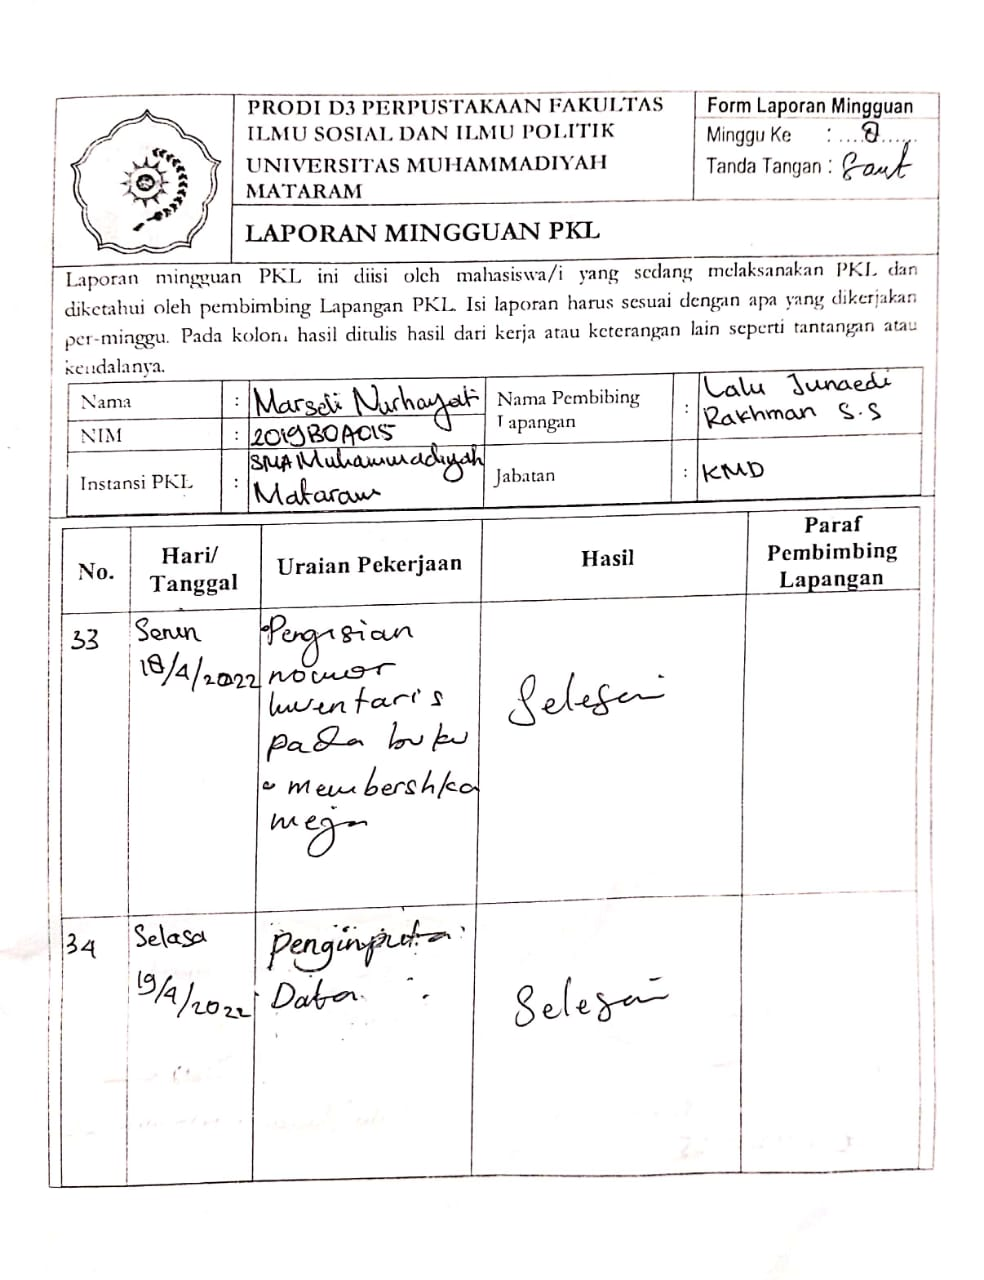 PRODI D3 PERPUSTAKAAN FAKULTAS
ILMU SOSIAL DAN ILMU POLITIK
UNIVERSITAS MUHAMMADIYAH
MATARAM
LAPORAN MINGGUAN PKL
Form Laporan Mingguan
Minggu Ke : ....8......
Tanda Tangan :
Laporan mingguan PKL ini diisi oleh mahasiswa/i yang sedang melaksanakan PKL dan
diketahui oleh pembimbing Lapangan PKL. Isi laporan harus sesuai dengan apa yang dikerjakan
per-minggu. Pada kolom hasil ditulis hasil dari kerja atau keterangan lain seperti tantangan atau
kendalanya.
Nama : Marseli Nurhayati
NIM : 2019B0A015
Instansi PKL : SMA Muhammadiyah
Mataram
Nama Pembibing
Lapangan : Lalu Junaedi
Rakhman S.S
Jabatan : KMD
No.
Hari/
Tanggal
Uraian Pekerjaan
Hasil
Paraf
Pembimbing
Lapangan
33
Senin
18/4/2022
Pengisian
nomor
Inventaris
pada buku
membershka
meja
Selesai
34
Selasa
19/4/2022
Penginputa
Data
Selesai